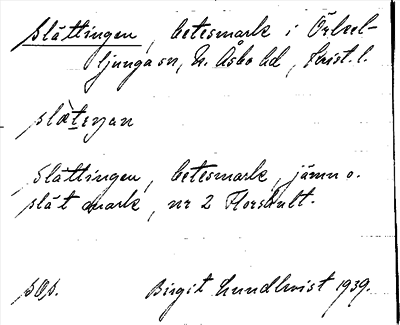 Slättingen, betesmark i Örkel-
ljunga sn, N. Åsbo hd, Krist. l.
slæ̀teŋan
Slättingen, betesmark, jämn o.
slät mark, nr 2 Florshult.
sOp. Birgit Lundkvist 1939.